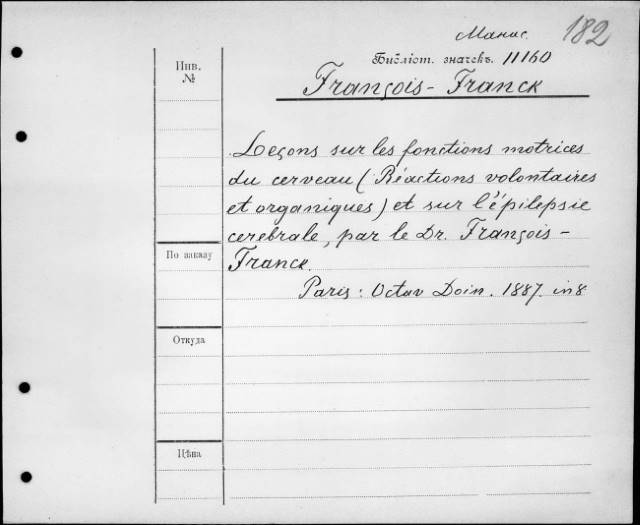 Манис. 182
Инв.
№
Библіот. значекъ. 11160
François - Franck
Leçons sur les fonctions motrices
du cerveau (Réactions volontaires
et organiques) et sur l'épilepsie
cerebrale, par le Dr. François -
Franck.
Paris: Octav Doin. 1887. in 8
По заказу
Откуда
Цѣна